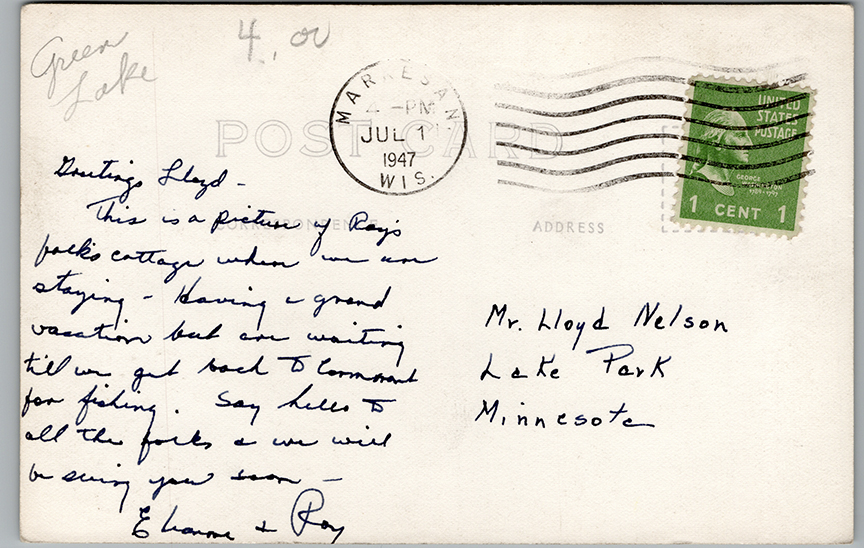 Green
Lake
4.00
MARKESAN
4 -PM
JUL 1
1947
WIS.
UNITED
STATES
POSTAGE
GEORGE
WASHINGTON
1789-1797
1 CENT 1
POST CARD
CORRESPONDENCE
ADDRESS
Greetings Lloyd -
This is a picture of Ray's
folks cottage where we are
staying - Having a grand
vacation but are waiting
till we get back to Cormorant
for fishing. Say hello to
all the folks & we will
be seeing you soon -
Eleanore & Ray
Mr. Lloyd Nelson
Lake Park
Minnesota